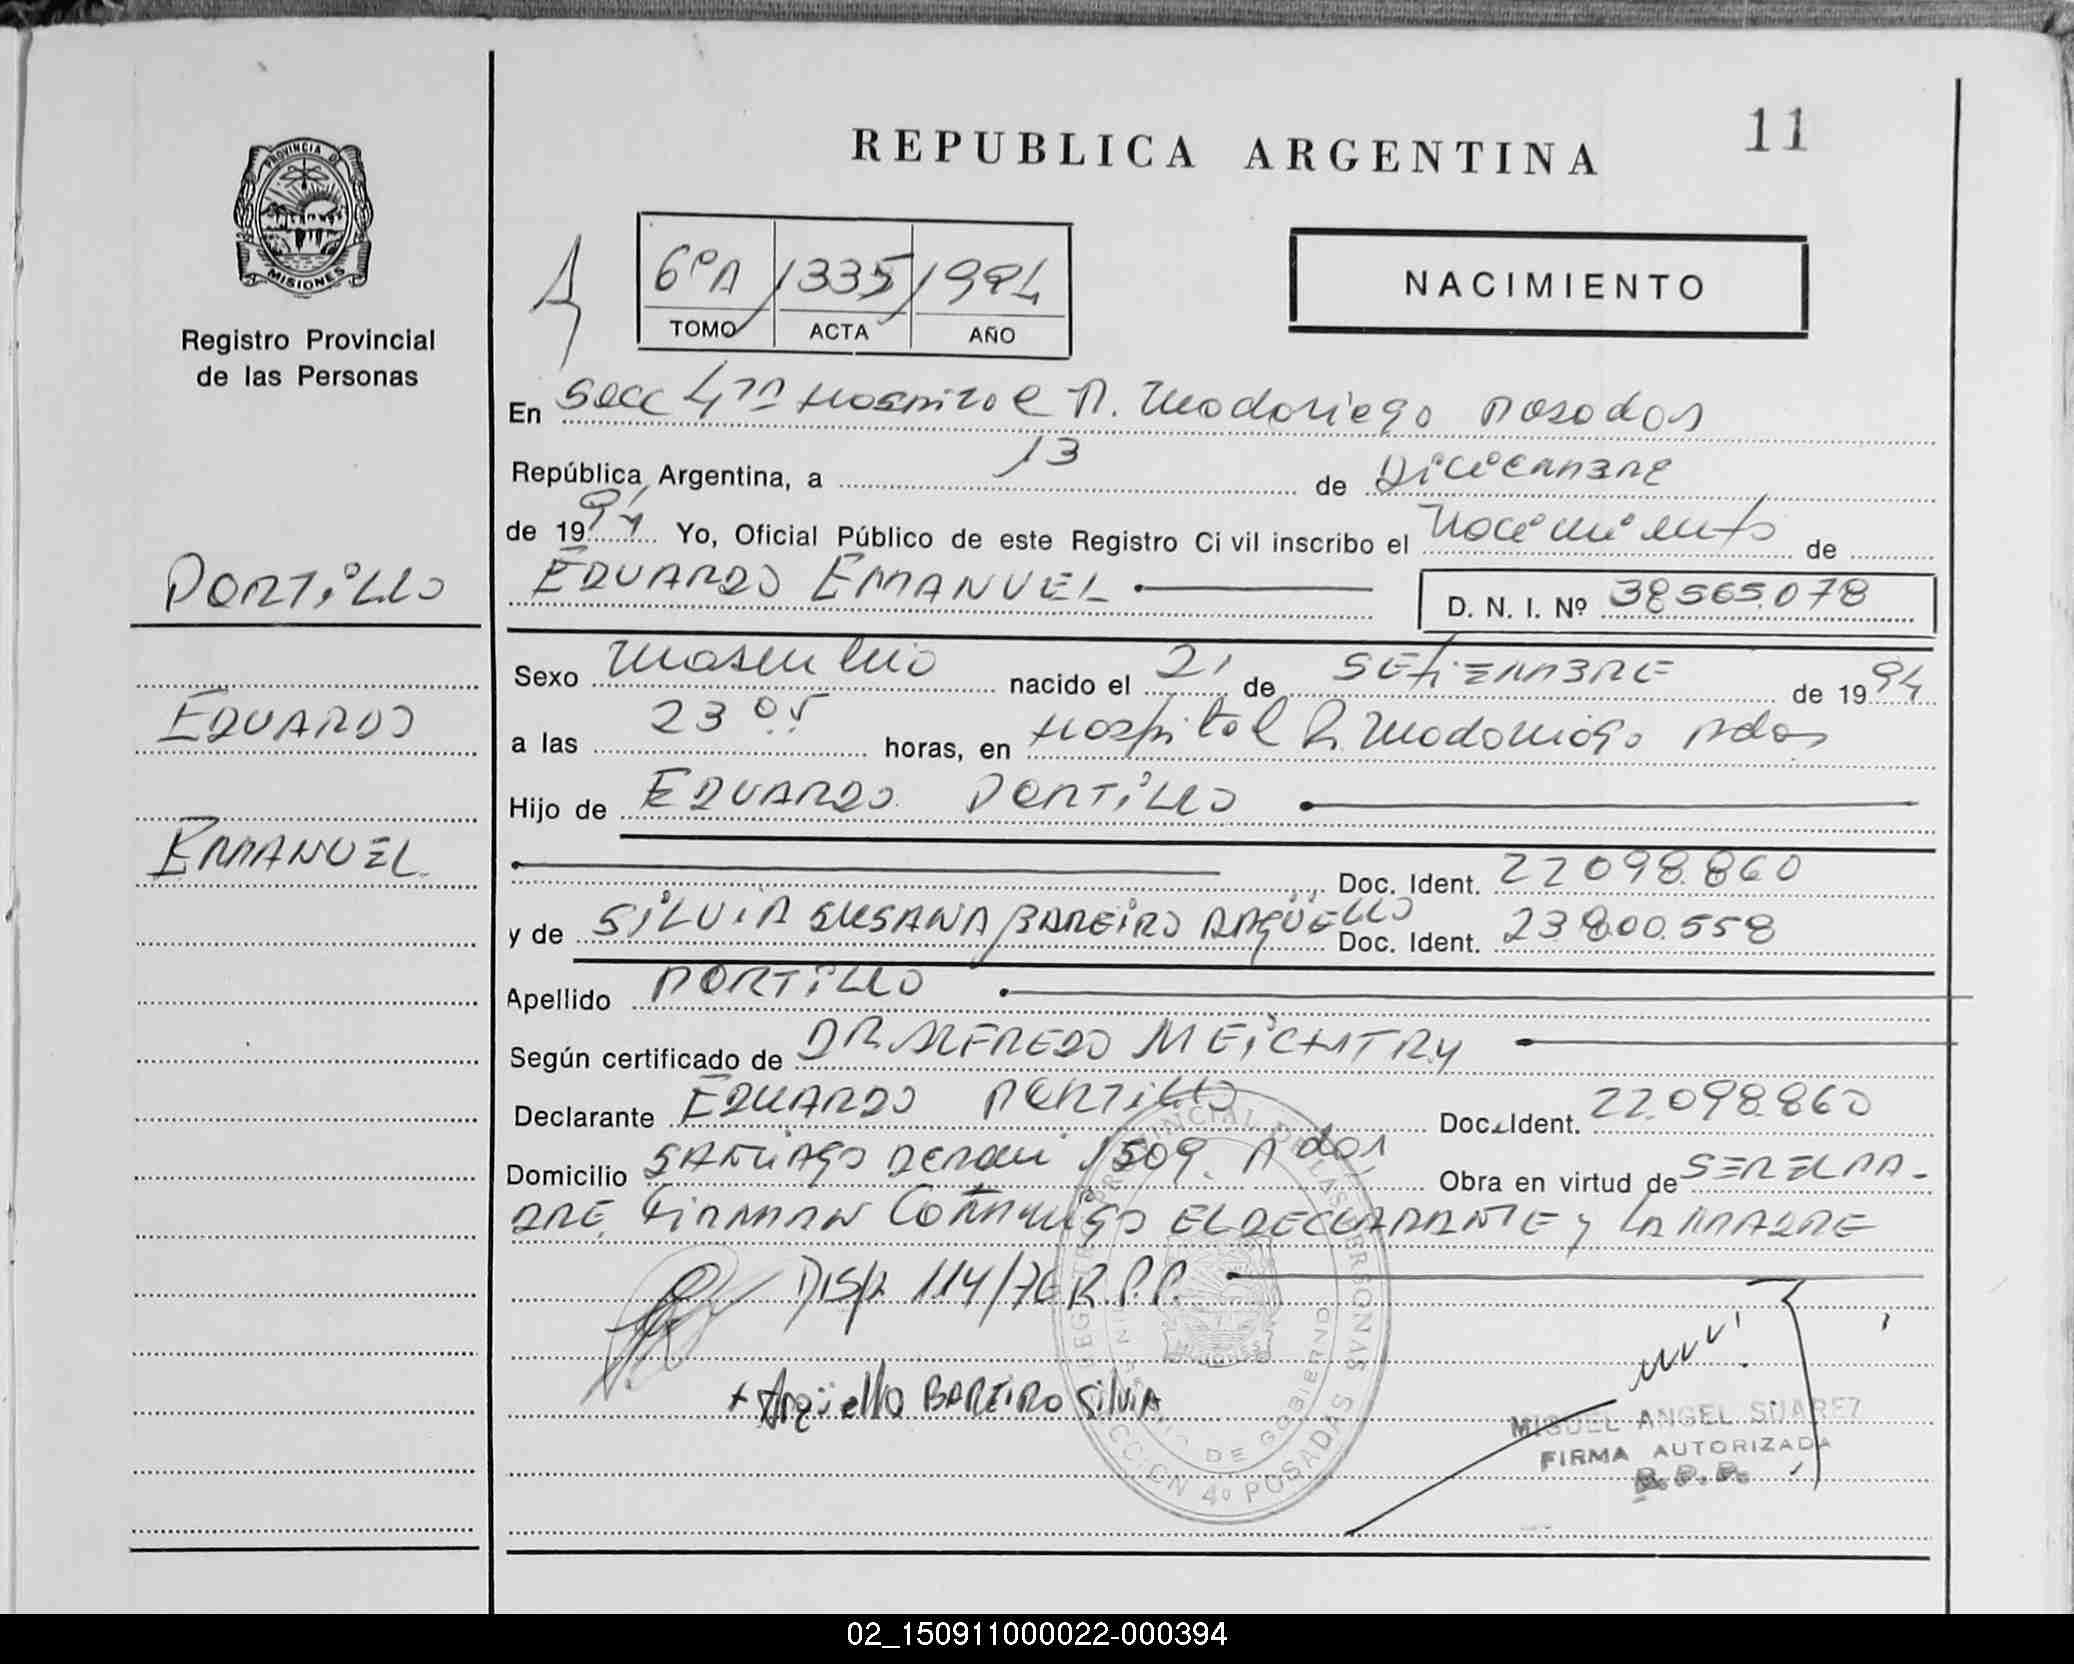 REPUBLICA ARGENTINA
11
PROVINCIA DE
MISIONES
Registro Provincial
de las Personas
6º A 1335 1994
TOMO ACTA AÑO
NACIMIENTO
En Secc 4ta Hospital R. Madariaga Posadas
República Argentina, a 13 de Diciembre
de 1994 Yo, Oficial Público de este Registro Civil inscribo el Nacimiento de
EDUARDO EMANUEL
D. N. I. Nº 38565.078
PORTILLO
EDUARDO
EMANUEL
Sexo Masculino nacido el 21 de SETIEMBRE de 1994
a las 23 05 horas, en Hospital R. Madariaga Pdas
Hijo de EDUARDO PORTILLO
Doc. Ident. 22098.860
y de SILVIA SUSANA BAREIRO ARGÜELLO Doc. Ident. 23800.558
Apellido PORTILLO
Según certificado de DR ALFREDO MEICHTRY
Declarante EDUARDO PORTILLO Doc. Ident. 22.098.860
Domicilio SANTIAGO DERQUI 1509 Pdas Obra en virtud de SER EL PA-
DRE, FIRMAN CONMIGO EL DECLARANTE y LA MADRE
DISP 114/76 R.P.P.
+ Argüello BAREIRO Silvia
REGISTRO PROVINCIAL DE LAS PERSONAS
MINISTERIO DE GOBIERNO
SECCION 4º POSADAS
MIGUEL ANGEL SUAREZ
FIRMA AUTORIZADA
R.P.P.
02_150911000022-000394